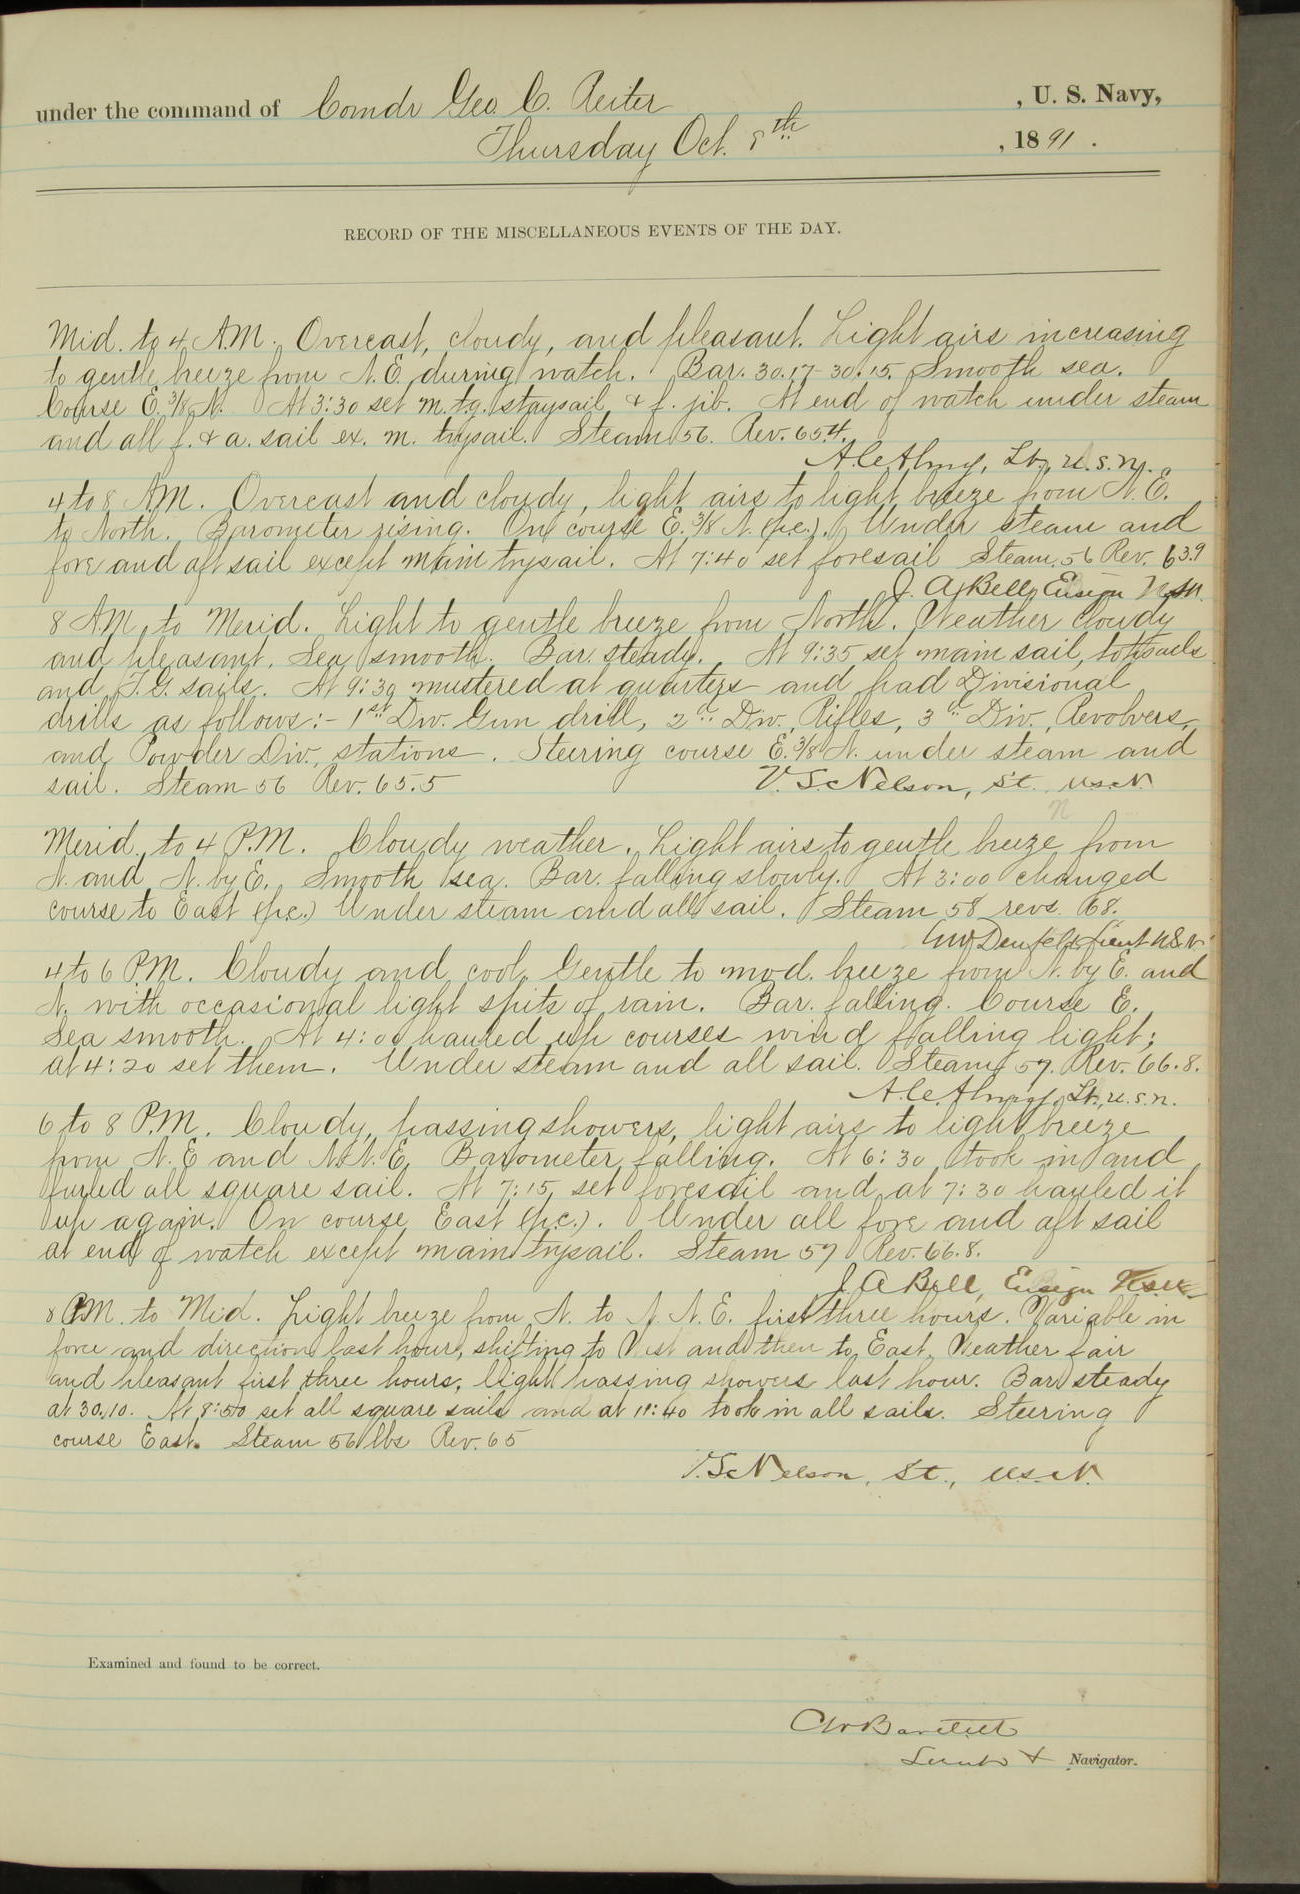 under the command of Comdr Geo. C. Reiter , U. S. Navy,
Thursday Oct. 8th , 1891 .
RECORD OF THE MISCELLANEOUS EVENTS OF THE DAY.
Mid. to 4 A.M. Overcast, cloudy, and pleasant. Light airs increasing
to gentle breeze from N.E. during watch. Bar. 30.17-30.15. Smooth sea.
Course E. 3/8 N. At 3:30 set m. t.g. staysail & f. jib. At end of watch under steam
and all f. & a. sail ex. m. trysail. Steam 56. Rev. 65.4.
Lt., U.S.N.
4 to 8 A.M. Overcast and cloudy, light airs to light breeze from N.E.
to North. Barometer rising. On course E. 3/8 N. (p.c.). Under steam and
fore and aft sail except main trysail. At 7:40 set foresail Steam. 56 Rev. 63.9
J. A. Bell, Ensign U.S.N.
8 A.M. to Merid. Light to gentle breeze from North. Weather cloudy
and pleasant. Sea smooth. Bar. steady. At 9:35 set main sail, topsails
and T.G. sails. At 9:39 mustered at quarters and had Divisional
drills as follows:- 1st Div. Gun drill, 2d Div., Rifles, 3d Div., Revolvers,
and Powder Div., stations. Steering course E. 3/8 N. under steam and
sail. Steam 56 Rev. 65.5 V. S. Nelson, Lt. U.S.N.
Merid. to 4 P.M. Cloudy weather. Light airs to gentle breeze from
N. and N. by E. Smooth sea. Bar. falling slowly. At 3:00 changed
course to East (p.c.) Under steam and all sail. Steam 58 revs. 68.
Denfeld Lieut U.S.N.
4 to 6 P.M. Cloudy and cool. Gentle to mod. breeze from N. by E. and
N. with occasional light spits of rain. Bar. falling. Course E.
Sea smooth. At 4:00 hauled up courses wind falling light;
at 4:20 set them. Under steam and all sail. Steam 57. Rev. 66.8.
Lt., U.S.N.
6 to 8 P.M. Cloudy, passing showers, light airs to light breeze
from N.E and N.N.E. Barometer falling. At 6:30 took in and
furled all square sail. At 7:15 set foresail and at 7:30 hauled it
up again. On course East (p.c.). Under all fore and aft sail
at end of watch except main trysail. Steam 57 Rev. 66.8.
J. A. Bell, Ensign U.S.N.
8 P.M. to Mid. Light breeze from N. to N.N.E. first three hours. Variable in
force and direction last hour, shifting to West and then to East. Weather fair
and pleasant first three hours, light passing showers last hour. Bar. steady
at 30.10. At 8:50 set all square sails and at 11:40 took in all sails. Steering
course East. Steam 56 lbs Rev. 65
V. S. Nelson, Lt., U.S.N.
Examined and found to be correct.
C W Bartlett
Lieut & Navigator.